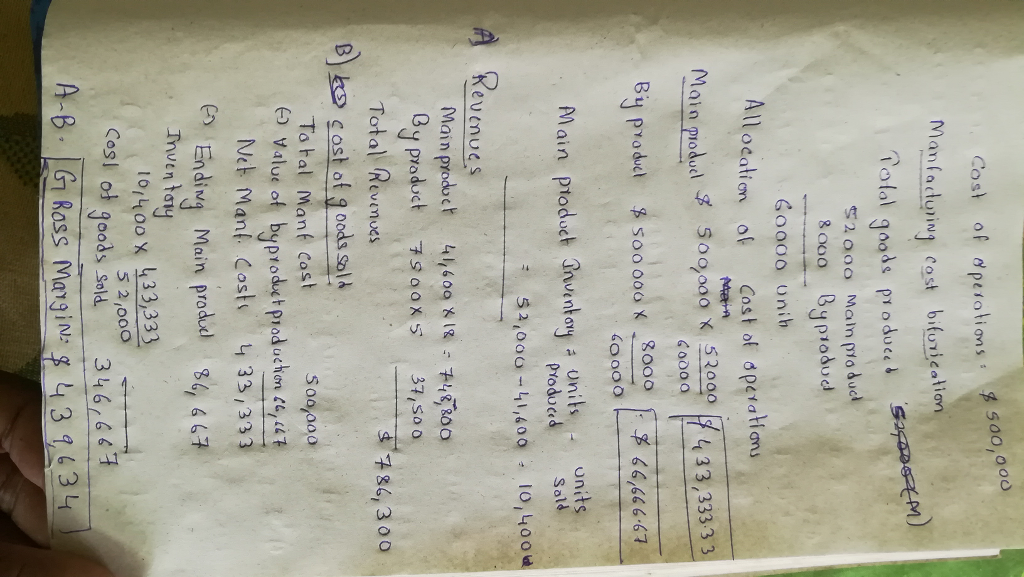 Cost of operations: $ 500,000
Manfacturing cost bifurication
Total goods produced
52000 Main product
8000 Byproduct
60000 unit
Allocation of Cost of operations
Main product $ 500,000 x 52000/60000 $ 433,333.33
By product $ 500000 x 8000/60000 : $ 66,666.67
Main product Inventory = units produced - units sold
= 52,000 - 41,600 = 10,400
A) Revenues
Main product 41,600 x 18 = 748,800
By product 7500 x 5 37,500
Total Revenues $ 786,300
B) Cost of goods sold
Total Manf cost 500,000
(-) Value of byproduct production 66,667
Net Manf Costs 433,333
(-) Ending Main product 86,667
Inventory
10,400 x 433,333/52,000
Cost of goods sold 346,667
A-B. GRoss Margin: $ 439,634